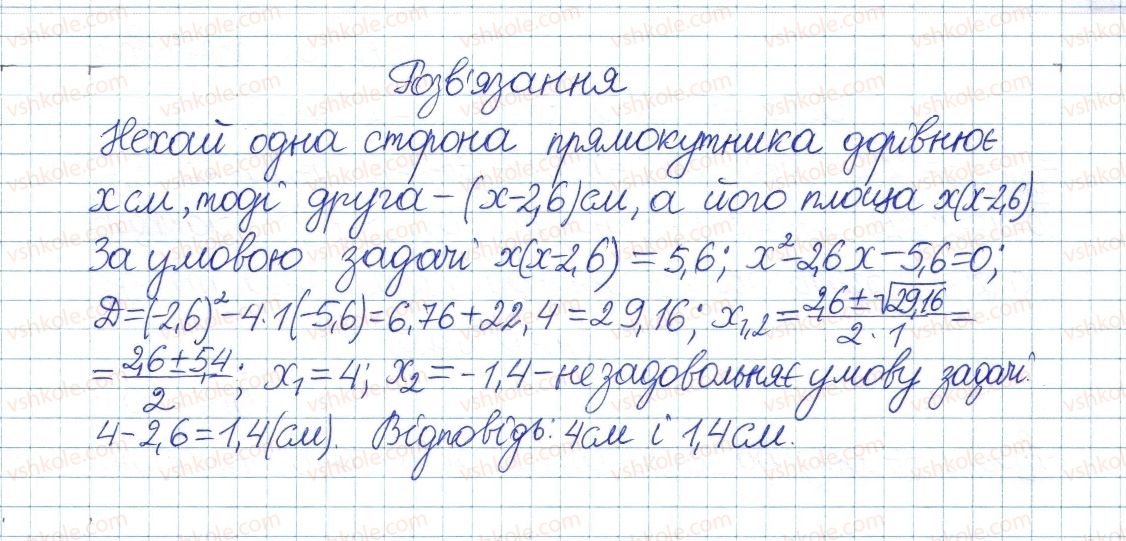 Розв'язання
Нехай одна сторона прямокутника дорівнює
x см, тоді друга – (x-2,6) см, а його площа x(x-2,6).
За умовою задачі x(x-2,6) = 5,6; x²-2,6x-5,6=0;
D=(-2,6)²-4·1(-5,6)=6,76+22,4=29,16; x₁,₂ = (2,6±√29,16)/(2·1) =
= (2,6±5,4)/2; x₁=4; x₂=-1,4 – не задовольняє умову задачі.
4-2,6=1,4(см). Відповідь: 4см і 1,4см.
vshkole.com